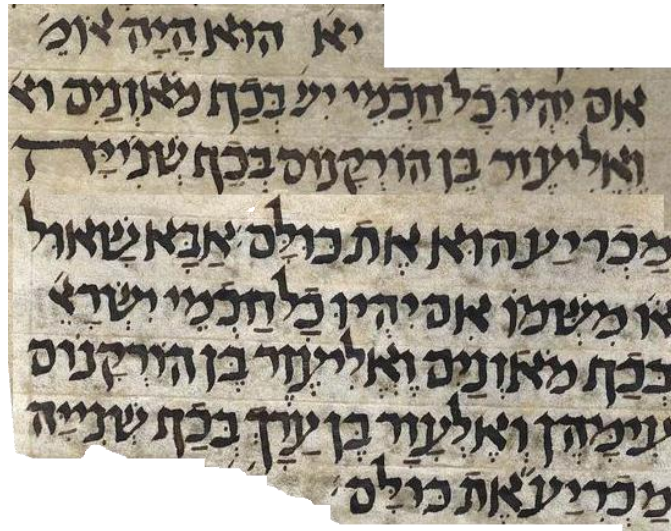 יא הוּא הָיָה אוֹמֵ׳
אִם יִהְיוּ כָל חַכְמֵי יִשׂ׳ בְּכַף מֹאזְנַיִם וא
וֶאֱלִיעֶזֶר בֶּן הוּרְקָנוֹס בְּכַף שְׁנִיָּיה
מַכְרִיעַ הוּא אֶת כּוּלָּם אַבָּא שָׁאוּל
או׳ מִשְּׁמוֹ אִם יִהְיוּ כָל חַכְמֵי יִשְׂרָאֵ׳
בְּכַף מֹאזְנַיִם וֶאֱלִיעֶזֶר בֶּן הוּרְקָנוֹס
עִימָּהֶן וְאֶלְעָזָר בֶּן עֲרָךְ בְּכַף שְׁנִיָּיה
מַכְרִיעַ אֶת כּוּלָּם